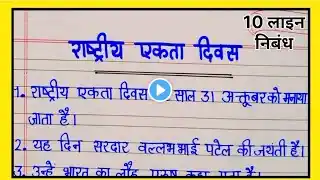 10 लाइन
निबंध
राष्ट्रीय एकता दिवस
1. राष्ट्रीय एकता दिवस साल 31 अक्तूबर को मनाया
जाता है।
2. यह दिन सरदार वल्लभभाई पटेल की जयंती है।
3. उन्हें भारत का लौह पुरुष कहा जाता है।